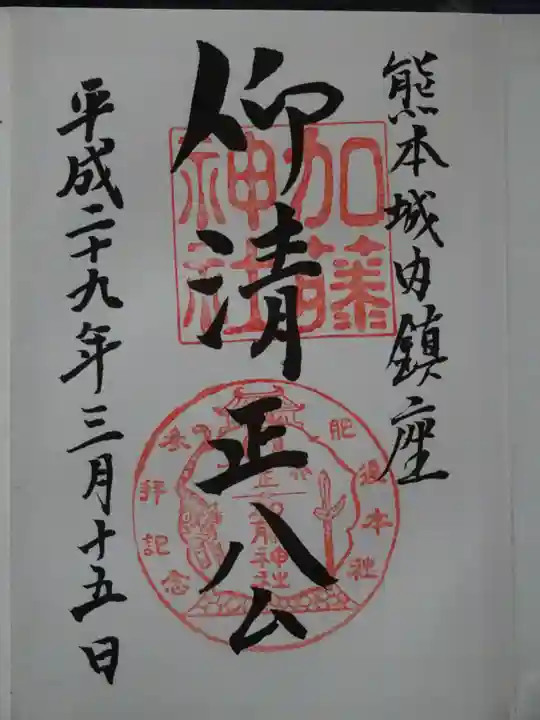 熊本城内鎮座
仰清正公
平成二十九年三月十五日
加藤神社
肥後本社
参拝記念
加藤神社